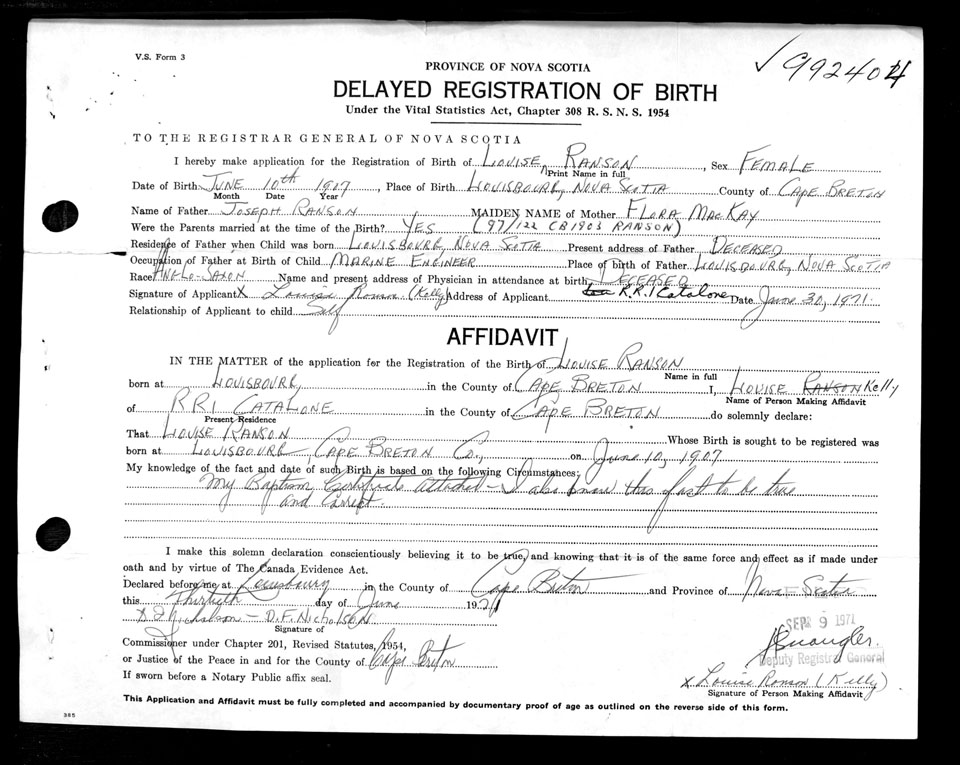 V.S. Form 3
PROVINCE OF NOVA SCOTIA
✓ 992404
DELAYED REGISTRATION OF BIRTH
Under the Vital Statistics Act, Chapter 308 R. S. N. S. 1954
TO THE REGISTRAR GENERAL OF NOVA SCOTIA
I hereby make application for the Registration of Birth of LOUISE RANSON, Sex FEMALE
Print Name in full
Date of Birth JUNE 10th 1907, Place of Birth LOUISBOURG, NOVA SCOTIA County of CAPE BRETON
Month Date Year
Name of Father JOSEPH RANSON MAIDEN NAME of Mother FLORA MACKAY
Were the Parents married at the time of the Birth? YES (97/122 CB1903 RANSON)
Residence of Father when Child was born LOUISBOURG, NOVA SCOTIA Present address of Father DECEASED
Occupation of Father at Birth of Child MARINE ENGINEER Place of birth of Father LOUISBOURG, NOVA SCOTIA
Race ANGLO-SAXON Name and present address of Physician in attendance at birth DECEASED
Signature of Applicant X Louise Ronson (Kelly) Address of Applicant R.R.1 Catalone Date June 30, 1971.
Relationship of Applicant to child Self
AFFIDAVIT
IN THE MATTER of the application for the Registration of the Birth of LOUISE RANSON
Name in full
born at LOUISBOURG, in the County of CAPE BRETON I, LOUISE RANSON Kelly
Name of Person Making Affidavit
of RR1 CATALONE in the County of CAPE BRETON do solemnly declare:
Present Residence
That LOUISE RANSON Whose Birth is sought to be registered was
born at LOUISBOURG, CAPE BRETON CO., on June 10, 1907
My knowledge of the fact and date of such Birth is based on the following Circumstances:
My Baptism Certificate attached - I also know this fact to be true
and Correct.
I make this solemn declaration conscientiously believing it to be true, and knowing that it is of the same force and effect as if made under
oath and by virtue of The Canada Evidence Act.
Declared before me at Louisbourg in the County of Cape Breton and Province of Nova Scotia
this Thirtieth day of June 1971
D F Nicholson - D.F. NICHOLSON
Signature of
SEP 9 1971
Commissioner under Chapter 201, Revised Statutes, 1954,
or Justice of the Peace in and for the County of Cape Breton
Deputy Registrar General
If sworn before a Notary Public affix seal.
x Louise Ronson (Kelly)
Signature of Person Making Affidavit
This Application and Affidavit must be fully completed and accompanied by documentary proof of age as outlined on the reverse side of this form.
385